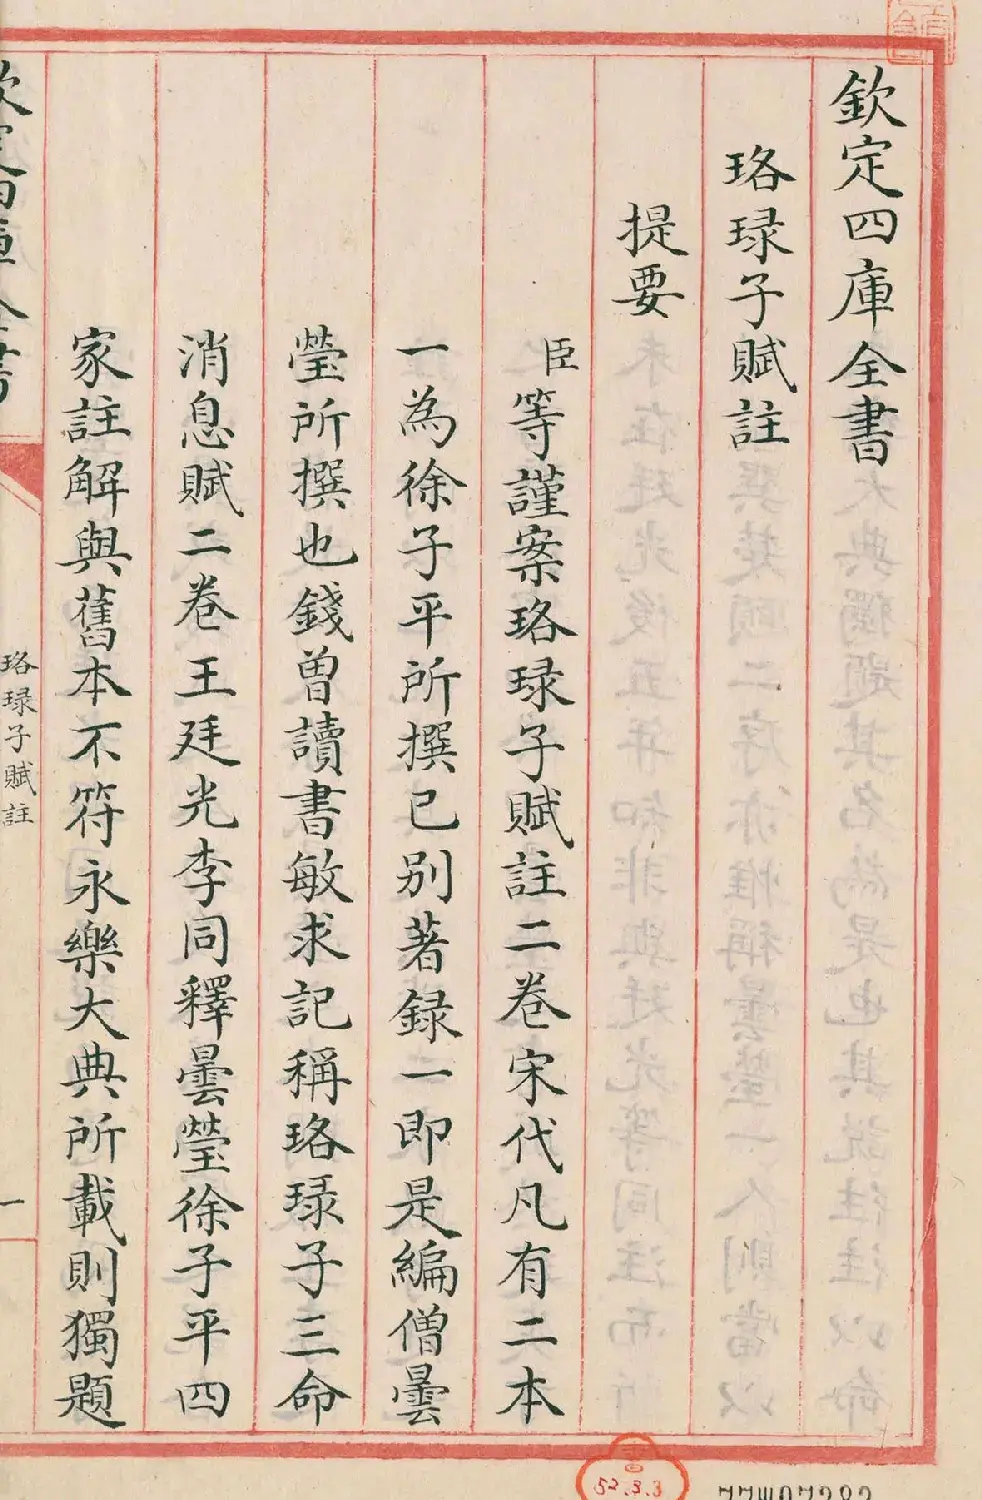 欽定四庫全書
珞琭子賦註
提要
臣等謹案珞琭子賦註二卷宋代凡有二本
一為徐子平所撰已別著錄一即是編僧曇
瑩所撰也錢曾讀書敏求記稱珞琭子三命
消息賦二卷王廷光李同釋曇瑩徐子平四
家註解與舊本不符永樂大典所載則獨題
欽定四庫全書
珞琭子賦註
一
52.3.3